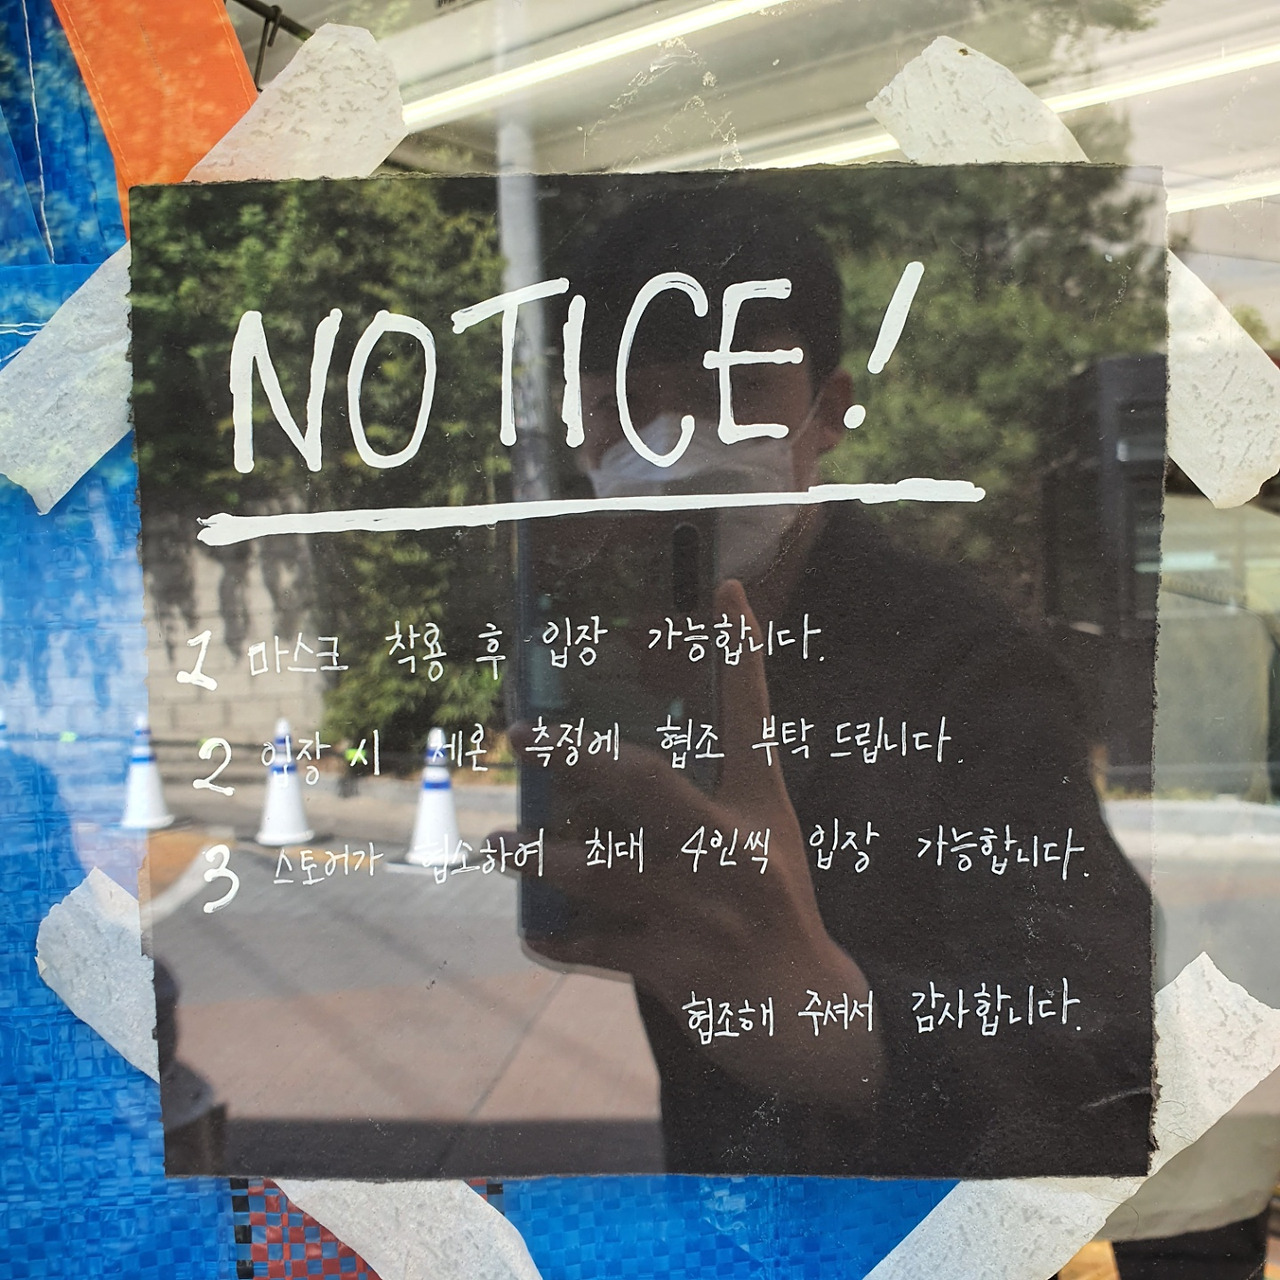 NOTICE!
1 마스크 착용 후 입장 가능합니다.
2 입장 시 체온 측정에 협조 부탁 드립니다.
3 스토어가 협소하여 최대 4인씩 입장 가능합니다.
협조해 주셔서 감사합니다.